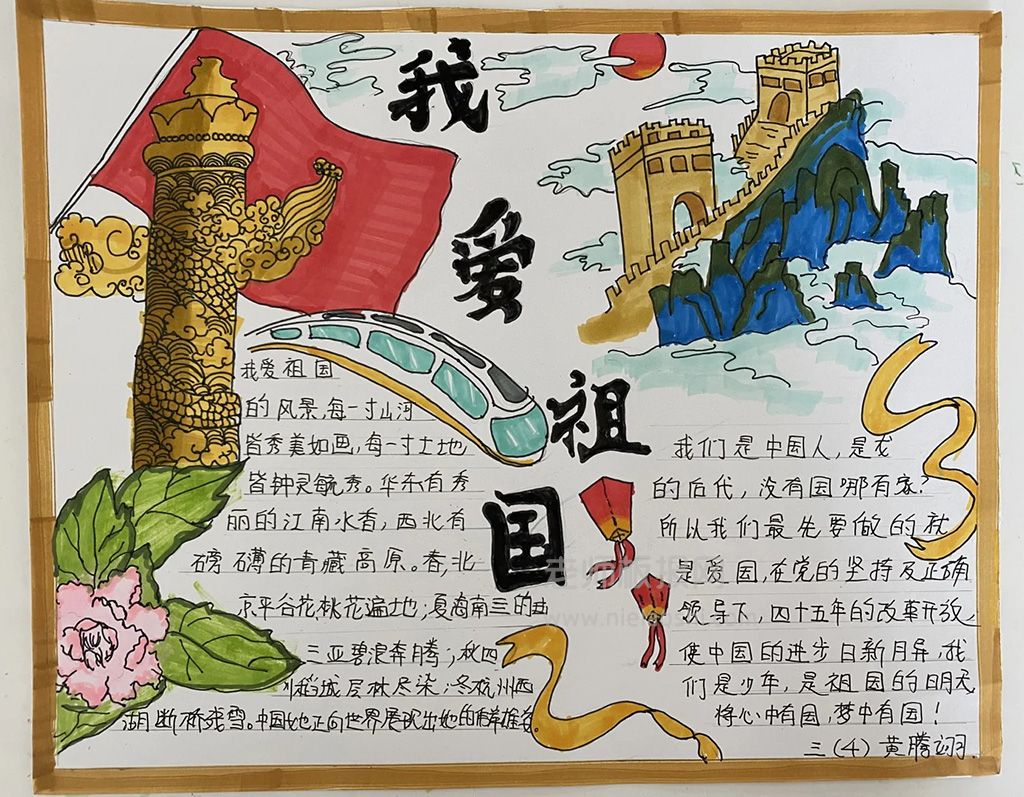 我爱祖国
我爱祖国
的风景,每一寸山河
皆秀美如画,每一寸土地
皆钟灵毓秀。华东有秀
丽的江南水香,西北有
磅礴的青藏高原。香,北
京平谷花,桃花遍地;夏海南三的
三亚碧浪奔腾;秋四
川稻城层林尽染;冬杭州西
湖断桥残雪。中国她正向世界展现出她的
我们是中国人,是龙
的后代,没有国哪有家?
所以我们最先要做的就
是爱国,在党的坚持及正确
领导下,四十五年的改革开放,
使中国的进步日新月异,我
们是少年,是祖国的明天
将心中有国,梦中有国!
三(4)黄腾翊